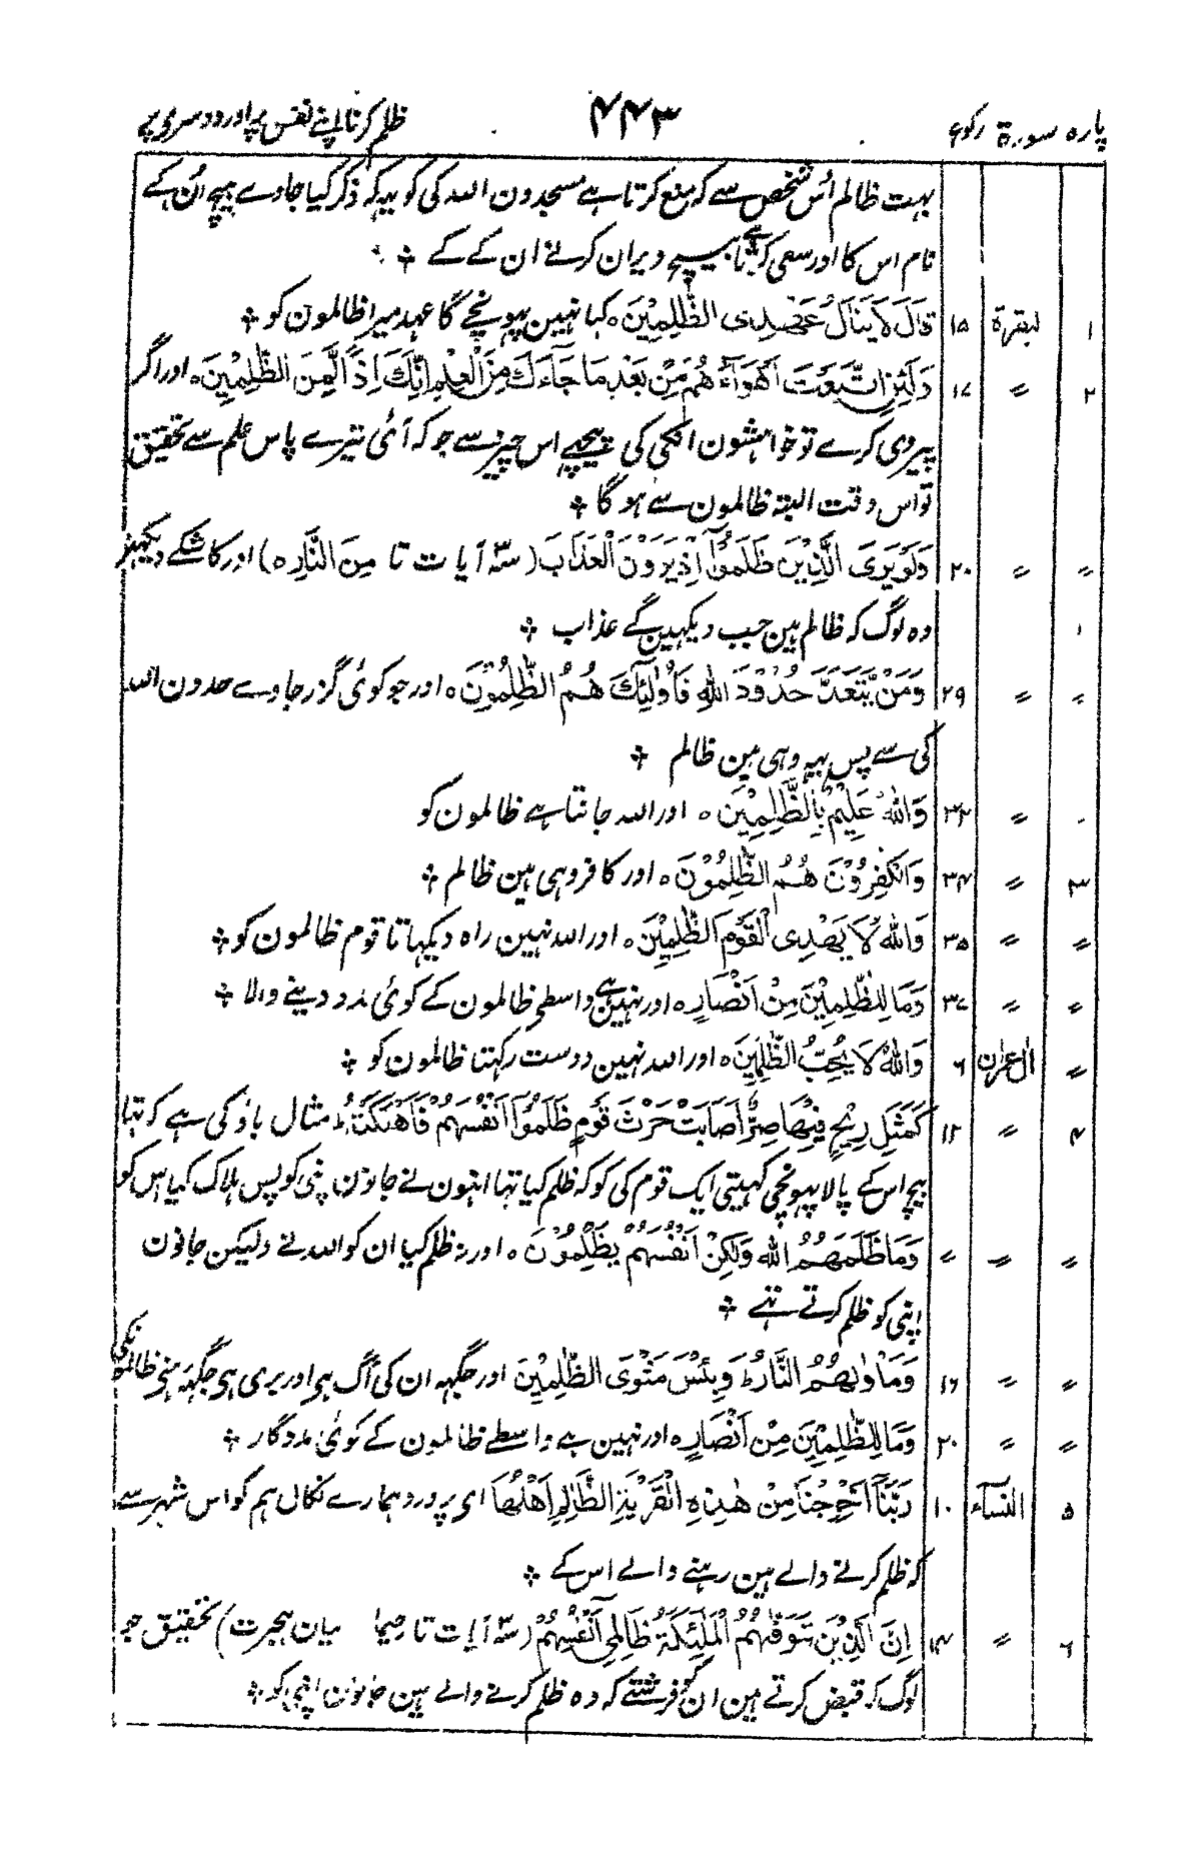 پارہ سورۃ رکوع ۴۴۳ ظلم کرنا اپنے نفس پر اور دوسری پے
بہت ظالم اُس شخص سے کہ منع کرتا ہے مسجدون اللہ کی کو یہہ کہ ذکر کیا جاوے بیچ اُن کے
نام اس کا اور سعی کرتا ہے بیچ ویران کرنے ان کے کے ÷
۱ البقرۃ ۱۵ قَالَ لَا یَنَالُ عَهْدِی الظّٰلِمِیْنَ ٥ کہا نہین پہونچے گا عہد میرا ظالمون کو ÷
۲ ״ ۱۷ وَلَئِنِ اتَّبَعْتَ اَهْوَآءَهُمْ مِّنْ بَعْدِ مَا جَآءَكَ مِنَ الْعِلْمِ اِنَّكَ اِذًا لَّمِنَ الظّٰلِمِیْنَ ٥ اور اگر
پیروی کرے تو خواہشون انکی کی پیچھے اس چیز سے جو کہ آئی تیرے پاس علم سے تحقیق
تو اس وقت البتہ ظالمون سے ہوگا ÷
״ ״ ۲۰ وَلَوْ یَرَی الَّذِیْنَ ظَلَمُوْٓا اِذْ یَرَوْنَ الْعَذَابَ (سہ آیات تا مِنَ النَّارِ ٥) اور کاشکے دیکہین
وہ لوگ کہ ظالم ہین جب دیکہین گے عذاب ÷
״ ״ ۲۹ وَمَنْ یَّتَعَدَّ حُدُوْدَ اللّٰهِ فَاُولٰٓئِكَ هُمُ الظّٰلِمُوْنَ ٥ اور جو کوئی گزر جاوے حدون اللہ
کی سے پس یہہ وہی ہین ظالم ÷
״ ״ ۳۲ وَاللّٰهُ عَلِیْمٌۢ بِالظّٰلِمِیْنَ ٥ اور اللہ جانتا ہے ظالمون کو
۳ ״ ۳۴ وَالْكٰفِرُوْنَ هُمُ الظّٰلِمُوْنَ ٥ اور کافر وہی ہین ظالم ÷
״ ״ ۳۵ وَاللّٰهُ لَا یَهْدِی الْقَوْمَ الظّٰلِمِیْنَ ٥ اور اللہ نہین راہ دیکہاتا قوم ظالمون کو ÷
״ ״ ۳۷ وَمَا لِلظّٰلِمِیْنَ مِنْ اَنْصَارٍ ٥ اور نہین ہے واسطے ظالمون کے کوئی مدد دینے والا ÷
״ اٰل عمرٰن ۶ وَاللّٰهُ لَا یُحِبُّ الظّٰلِمِیْنَ ٥ اور اللہ نہین دوست رکہتا ظالمون کو ÷
۴ ״ ۱۲ كَمَثَلِ رِیْحٍ فِیْهَا صِرٌّ اَصَابَتْ حَرْثَ قَوْمٍ ظَلَمُوْٓا اَنْفُسَهُمْ فَاَهْلَكَتْهُ ط مثال باؤ کی ہے کہ تہا
بیچ اس کے پالا پہونچی کہیتی ایک قوم کی کو کہ ظلم کیا تہا انہون نے جانون اپنی کو پس ہلاک کیا اس کو
״ ״ ״ وَمَا ظَلَمَهُمُ اللّٰهُ وَلٰكِنْ اَنْفُسَهُمْ یَظْلِمُوْنَ ٥ اور نہ ظلم کیا ان کو اللہ نے ولیکن جانون
اپنی کو ظلم کرتے تہے ÷
״ ״ ۱۶ وَمَاْوٰىهُمُ النَّارُ ط وَبِئْسَ مَثْوَی الظّٰلِمِیْنَ اور جگہہ ان کی آگ ہے اور بری ہی جگہہ ظالمونکی
״ ״ ۲۰ وَمَا لِلظّٰلِمِیْنَ مِنْ اَنْصَارٍ ٥ اور نہین ہے واسطے ظالمون کے کوئی مددگار ÷
۵ النسآء ۱۰ رَبَّنَآ اَخْرِجْنَا مِنْ هٰذِهِ الْقَرْیَةِ الظَّالِمِ اَهْلُهَا ای پرورد ہمارے نکال ہم کو اس شہر سے
کہ ظلم کرنے والے ہین رہنے والے اس کے ÷
۶ ״ ۱۴ اِنَّ الَّذِیْنَ تَوَفّٰىهُمُ الْمَلٰٓئِكَةُ ظَالِمِیْٓ اَنْفُسِهِمْ (سہ آیات تا رحیما بیان ہجرت) تحقیق جو
لوگ کہ قبض کرتے ہین ان کو فرشتے کہ وہ ظلم کرنے والے ہین جانون اپنی کو ÷